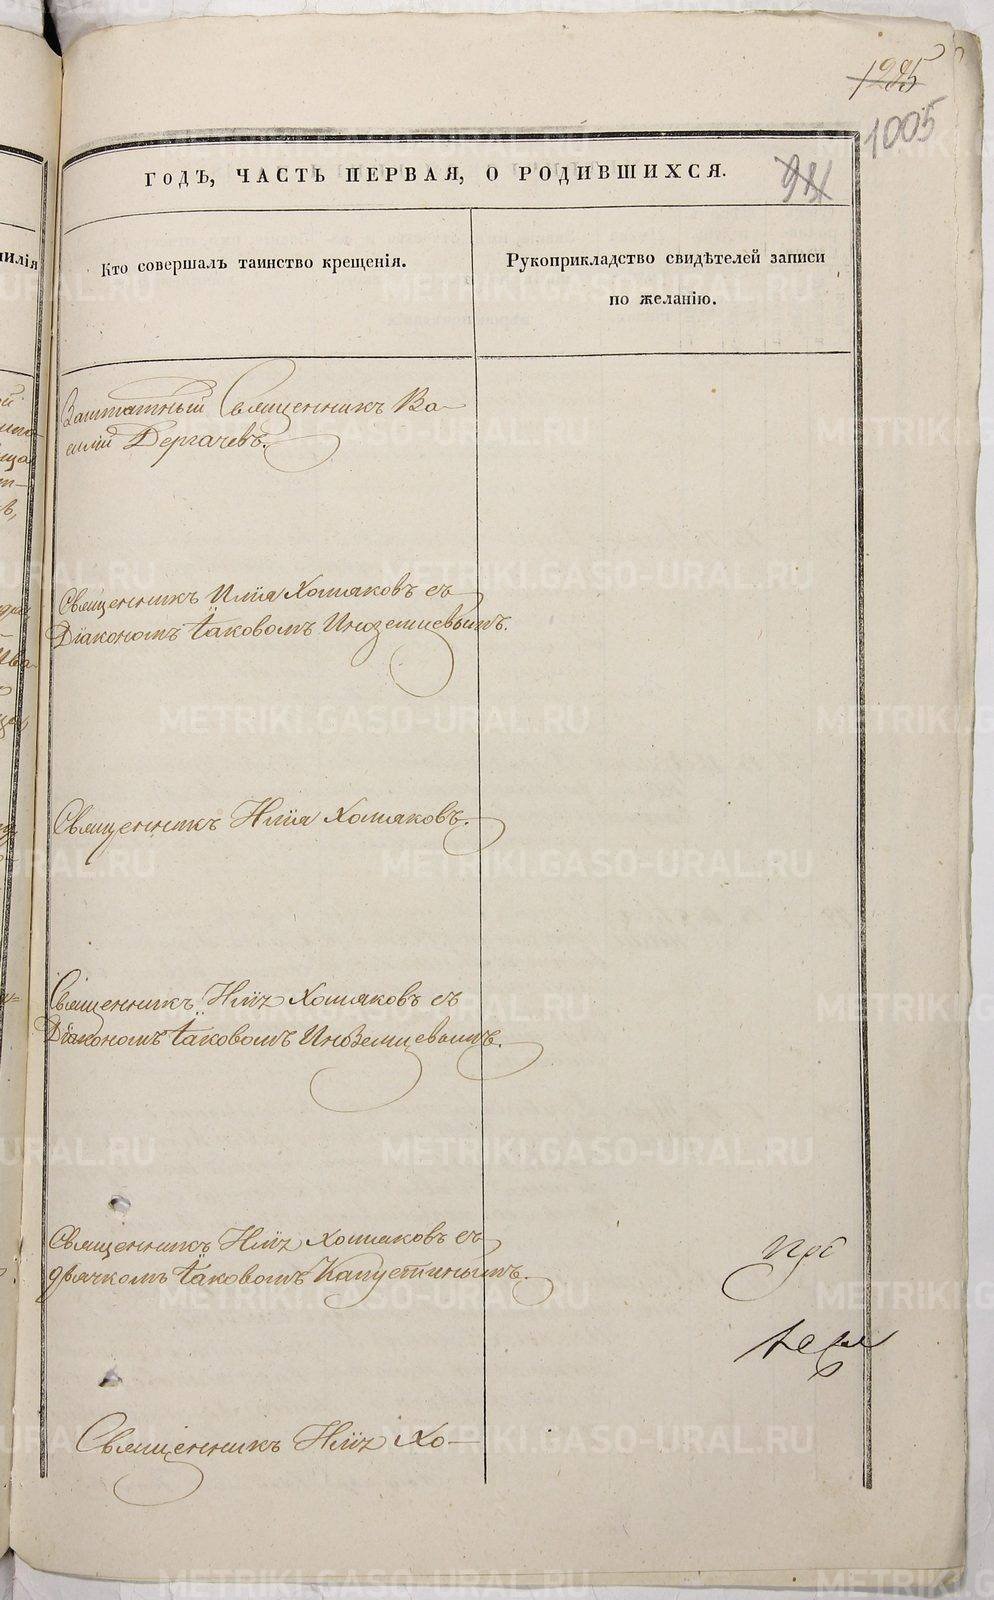 1225
1005
ГОДЪ, ЧАСТЬ ПЕРВАЯ, О РОДИВШИХСЯ.
Кто совершалъ таинство крещенія.
Рукоприкладство свидѣтелей записи
по желанію.
Заштатный Священникъ Ва-
силій Дергачевъ.
Священникъ Илія Хомяковъ съ
Діакономъ Іаковомъ Иноземцевымъ.
Священникъ Илія Хомяковъ.
Священникъ Илія Хомяковъ съ
Діакономъ Іаковомъ Иноземцевымъ.
Священникъ Илія Хомяковъ съ
дьячкомъ Іаковомъ Капустинымъ.
Священникъ Илія Хо-
METRIKI.GASO-URAL.RU